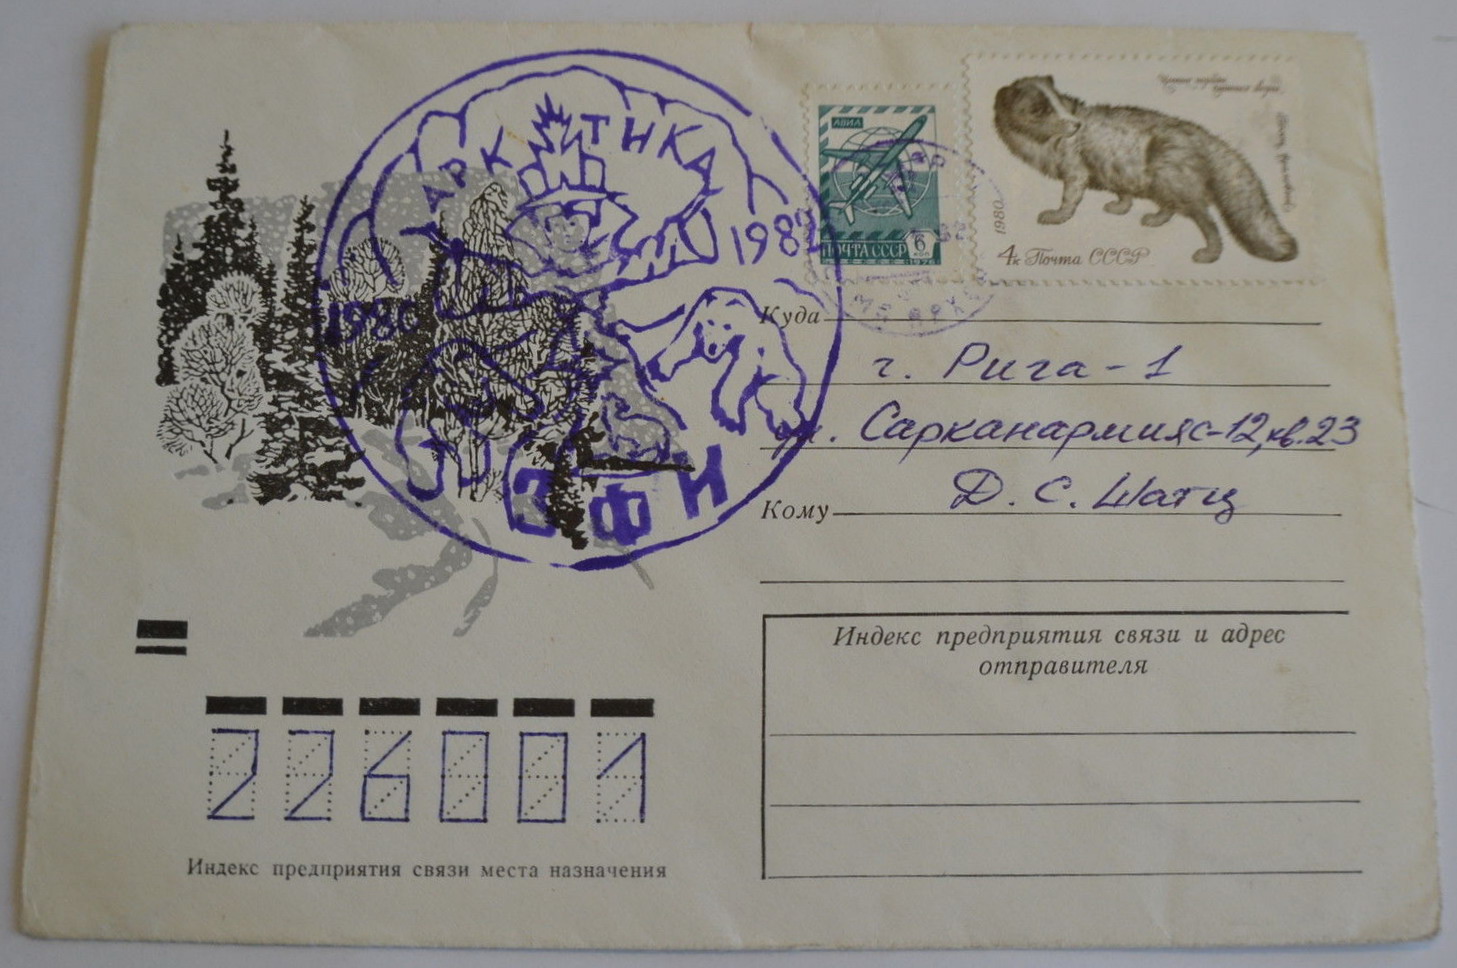 АРКТИКА
1980
1982
ЗФИ
АВИА
ПОЧТА СССР
6
коп
1976
1980
4к Почта СССР
Куда
г. Рига-1
ул. Сарканармияс-12, кв. 23
Кому
Д. С. Шатц
Индекс предприятия связи и адрес
отправителя
226001
Индекс предприятия связи места назначения